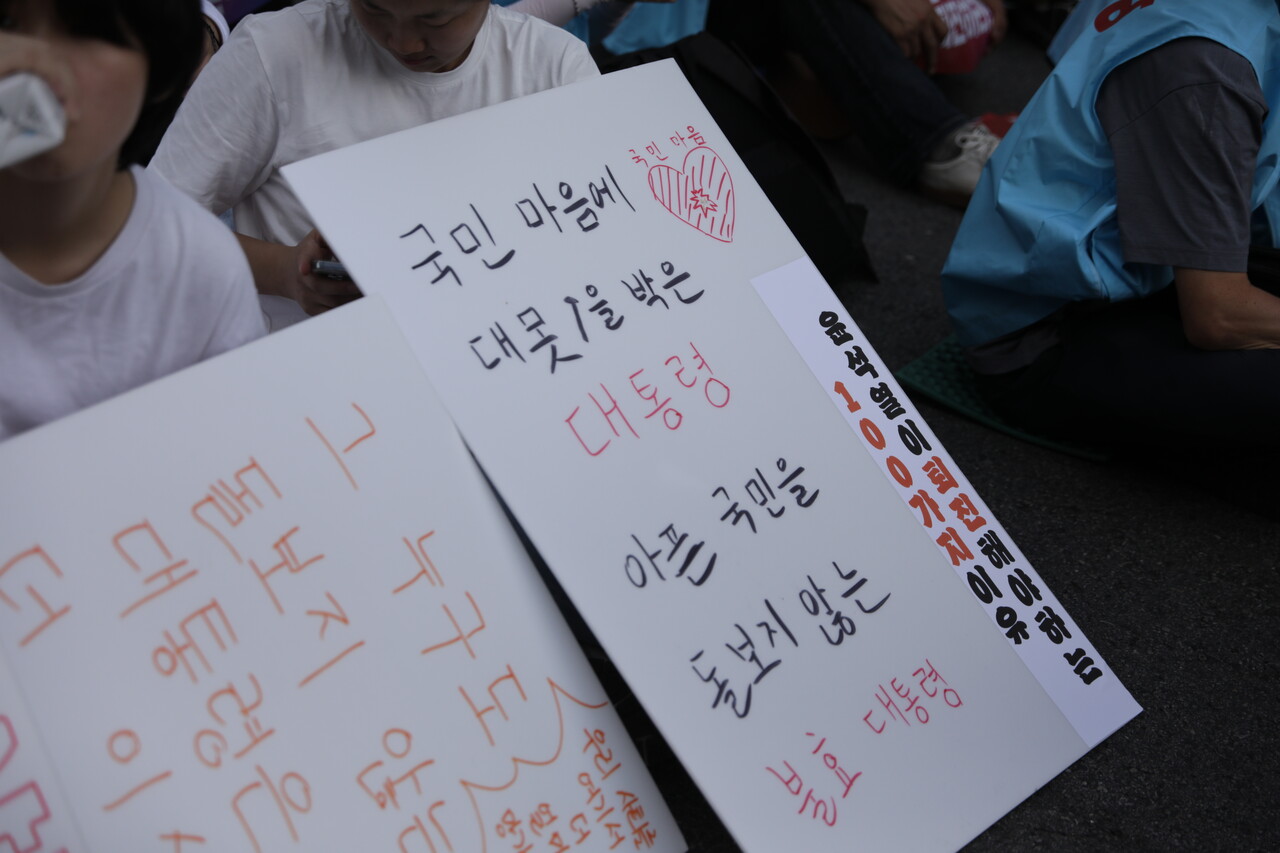 국민 마음
국민 마음에
대못 1을 박은
대통령
아픈 국민을
돌보지 않는
불효 대통령
윤석열이 퇴진해야하는
100가지 이유
그 누구도
돌보지 않는
대통령은
우리